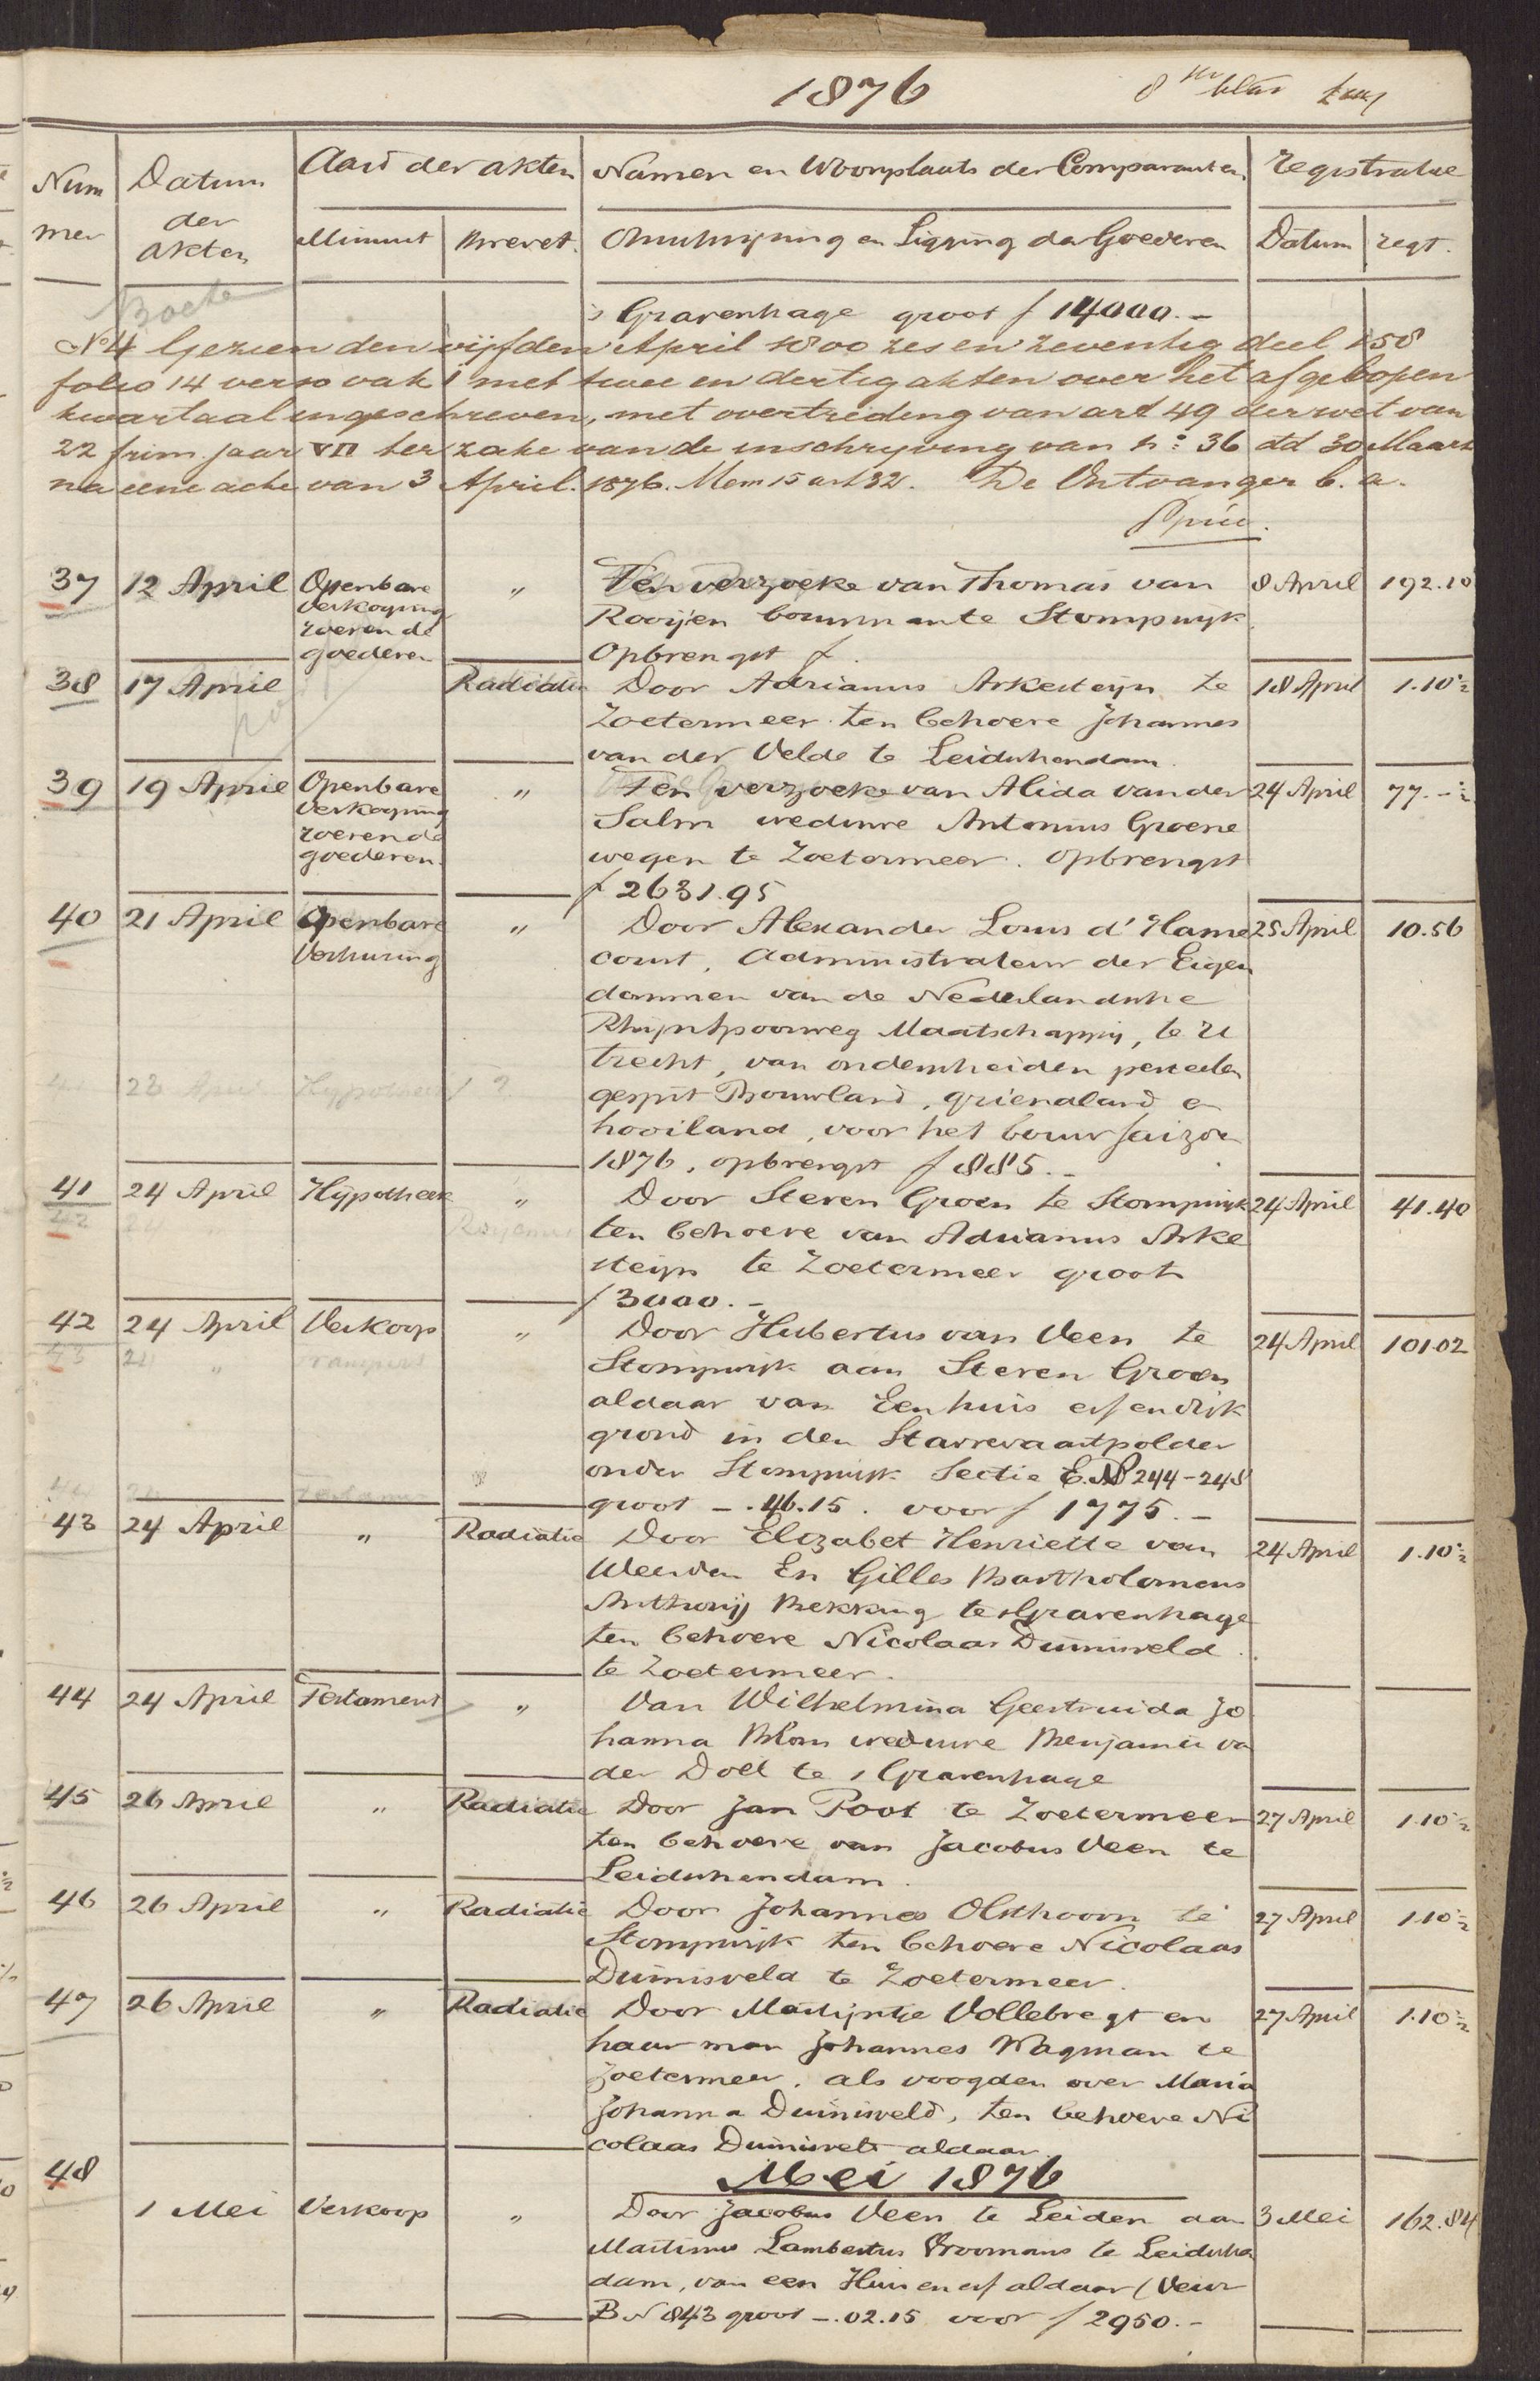 1876
8ste blad
Num
mer
Datum
der
akten
Aard der akten
Minuut
Brevet.
Namen en Woonplaats der Comparanten.
Omschrijving en Ligging der Goederen
registratie
Datum
regt.
Boete
's Gravenhage groot f 14000.-
No 4 Gezien den vijfden April 1800 zes en zeventig deel 158
folio 14 verso vak 1 met twee en dertig akten over het afgeloopen
kwartaal ingeschreven, met overtreding van art 49 der wet van
22 frim. jaar VII ter zake van de inschrijving van no: 36 dd 30 Maart
na eene acte van 3 April. 1876. Mem 15 art 32. De Ontvanger b. a.
37 12 April Openbare " Ten verzoeke van Thomas van 8 April 192.10
verkooping Rooijen bouwman te Stompwijk.
roerende
goederen Opbrengst f.
38 17 April Radiatie Door Adrianus Arkesteijn te 18 April 1.10½
Zoetermeer ten behoeve Johannes
van der Velde te Leidschendam.
39 19 April Openbare " Ten verzoeke van Alida van der 24 April 77.-½
verkooping Salm weduwe Antonius Groene
roerende
goederen. wegen te Zoetermeer. Opbrengst
f 2631.95
40 21 April Openbare " Door Alexander Louis d'Hame 25 April 10.56
Verhuring court, Administrateur der Eigen
dommen van de Nederlandsche
Rhijnspoorweg Maatschappij, te U
trecht, van onderscheiden perceelen
23 April Hypotheek
gespit Bouwland, griendland en
hooiland, voor het bouwsaizoen
1876, opbrengst f 885.-
41 24 April Hijpotheek " Door Steven Groen te Stompwijk 24 April 41.40
42 ten behoeve van Adrianus Arke
steijn te Zoetermeer groot
f 3000.-
42 24 April Verkoop " Door Hubertus van Veen te 24 April 101.02
43 24 " Transport Stompwijk aan Steven Groen
aldaar van Een huis erf en dijk
grond in den Starrevaartpolder
onder Stompwijk Sectie E. No 244-248
groot -.46.15. voor f 1775.-
43 24 April " Radiatie Door Elizabet Henriette van 24 April 1.10½
Weerden En Gilles Bartholomeus
Anthonij Bekking te 's Gravenhage
ten behoeve Nicolaas Duinisveld
te Zoetermeer.
44 24 April Testament " Van Wilhelmina Geertruida Jo
hanna Blom weduwe Benjamin va
der Doll te 's Gravenhage
45 26 April " Radiatie Door Jan Poot te Zoetermeer 27 April 1.10½
ten behoeve van Jacobus Veen te
Leidschendam.
46 26 April " Radiatie Door Johannes Olsthoorn te 27 April 1.10½
Stompwijk ten behoeve Nicolaas
Duinisveld te Zoetermeer.
47 26 April " Radiatie Door Martijntje Vollebregt en 27 April 1.10½
haar man Johannes Wagman te
Zoetermeer. als voogden over Maria
Johanna Duinisveld, ten behoeve Ni
colaas Duinisvelt aldaar.
48 Mei 1876
1 Mei Verkoop " Door Jacobus Veen te Leiden aan 3 Mei 162.84
Martinus Lambertus Vroomans te Leidschen
dam, van een Huis en erf aldaar (Veur
B No 843 groot -.02.15 voor f 2950.-